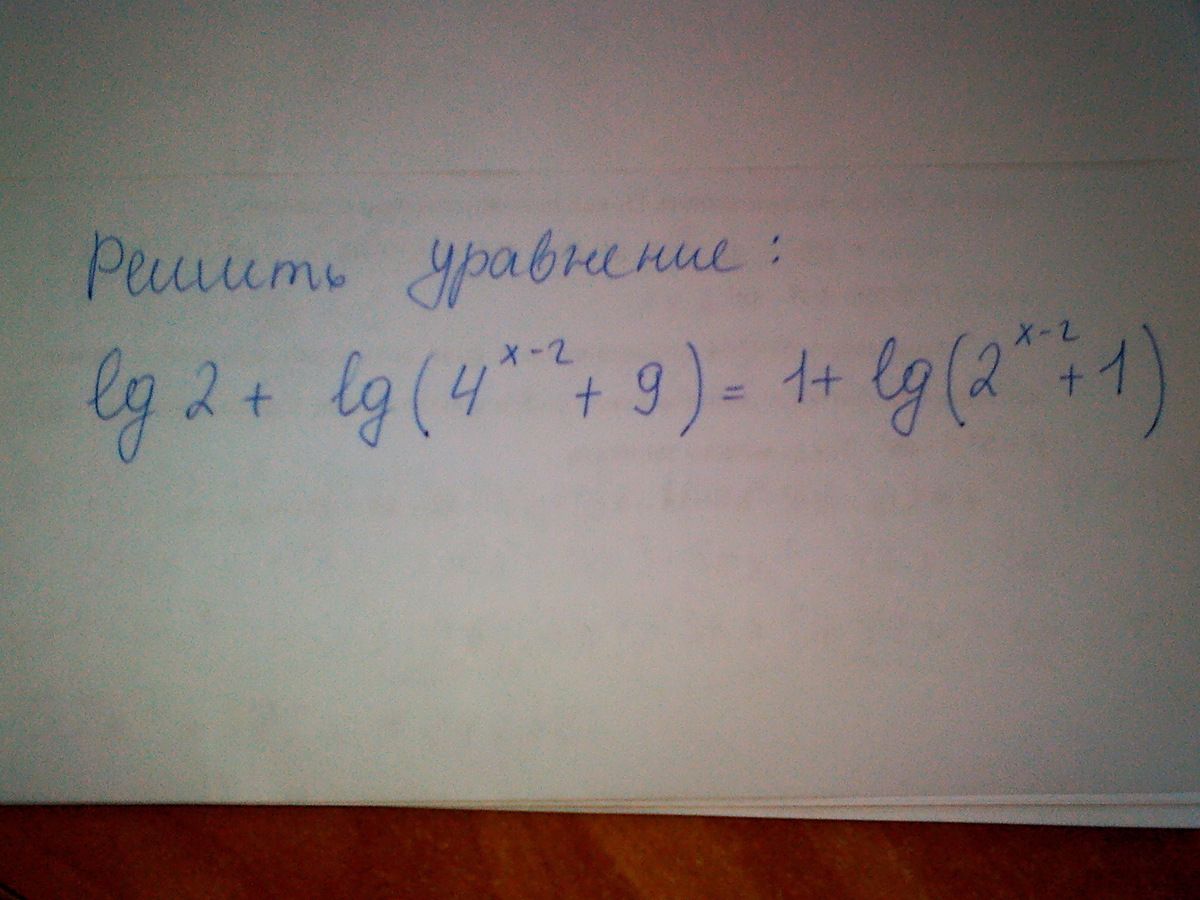 Решить уравнение:
lg 2 + lg(4^{x-2} + 9) = 1 + lg(2^{x-2} + 1)